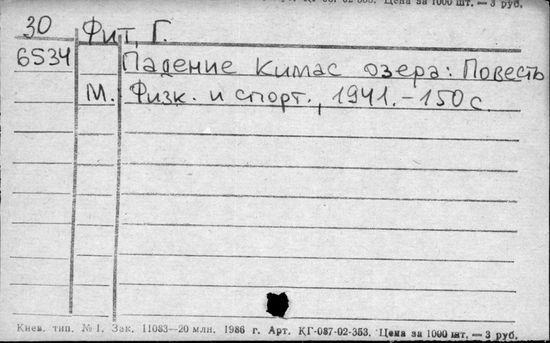 КГ-087-02-353. Цена за 1000 шт. — 3 руб.
30 Фит, Г.
6534 Падение Кимас озера: Повесть
М. Физк. и спорт., 1941. - 150 с.
Киев. тип. № 1. Зак. 11083—20 млн. 1986 г. Арт. КГ-087-02-353. Цена за 1000 шт. — 3 руб.